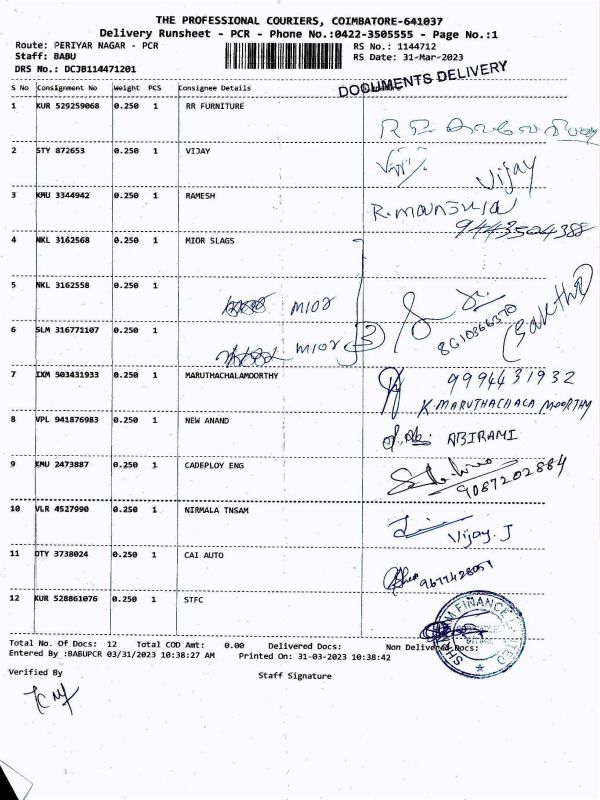 THE PROFESSIONAL COURIERS, COIMBATORE-641037
Delivery Runsheet - PCR - Phone No.:0422-3505555 - Page No.:1
Route: PERIYAR NAGAR - PCR
RS No.: 1144712
Staff: BABU
RS Date: 31-Mar-2023
DRS No.: DCJB114471201
DOCUMENTS DELIVERY
S No Consignment No Weight PCS Consignee Details
1 KUR 529259068 0.250 1 RR FURNITURE
2 STY 872653 0.250 1 VIJAY
Vijay
3 KMU 3344942 0.250 1 RAMESH
9443504388
4 NKL 3162568 0.250 1 MIOR SLAGS
5 NKL 3162558 0.250 1
Mior
Sakthi
6 SLM 316771107 0.250 1
Mior 3
7 IXM 503431933 0.250 1 MARUTHACHALAMOORTHY
9994431932
K.MARUTHACHALA MOORTHY
8 VPL 941876983 0.250 1 NEW ANAND
ABIRAMI
9 KMU 2473887 0.250 1 CADEPLOY ENG
9087202884
10 VLR 4527990 0.250 1 NIRMALA TNSAM
Vijay. J
11 DTY 3738024 0.250 1 CAI AUTO
12 KUR 528861076 0.250 1 STFC
Total No. Of Docs: 12 Total COD Amt: 0.00 Delivered Docs: Non Delivered Docs:
Entered By :BABUPCR 03/31/2023 10:38:27 AM Printed On: 31-03-2023 10:38:42
Verified By
Staff Signature